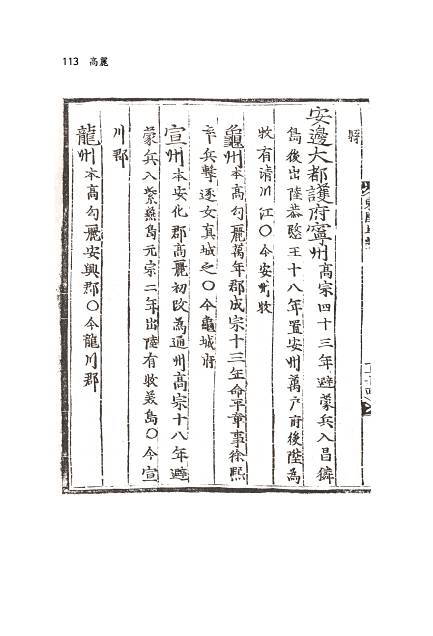 113 高麗
縣
安邊大都護府寧州高宗四十三年避蒙兵入昌獜
島後出陸恭愍王十八年置安州萬户府後陞為
牧有淸川江○今安州牧
龜州本高勾麗萬年郡成宗十三年命平章事徐熙
率兵擊逐女真城之○今龜城府
宣州本安化郡高麗初改為通州高宗十八年避
蒙兵入紫燕島元宗二年出陸有牧羙島○今宣
川郡
龍州本高勾麗安興郡○今龍川郡